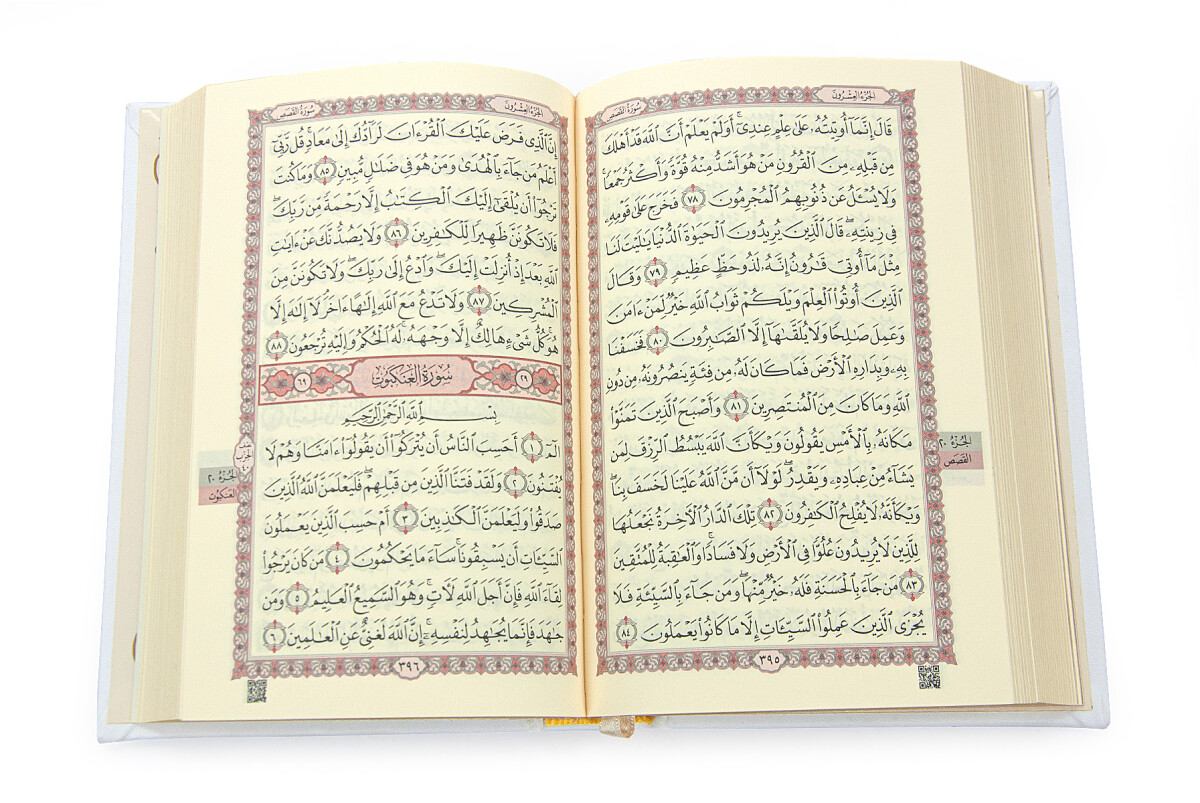 سُورَةُ القَصَصِ
الجُزْءُ العِشْرُونَ
قَالَ إِنَّمَآ أُوتِيتُهُۥ عَلَىٰ عِلْمٍ عِندِىٓۚ أَوَلَمْ يَعْلَمْ أَنَّ ٱللَّهَ قَدْ أَهْلَكَ
مِن قَبْلِهِۦ مِنَ ٱلْقُرُونِ مَنْ هُوَ أَشَدُّ مِنْهُ قُوَّةً وَأَكْثَرُ جَمْعًاۚ
وَلَا يُسْـَٔلُ عَن ذُنُوبِهِمُ ٱلْمُجْرِمُونَ ٧٨ فَخَرَجَ عَلَىٰ قَوْمِهِۦ
فِى زِينَتِهِۦۖ قَالَ ٱلَّذِينَ يُرِيدُونَ ٱلْحَيَوٰةَ ٱلدُّنْيَا يَـٰلَيْتَ لَنَا
مِثْلَ مَآ أُوتِىَ قَـٰرُونُ إِنَّهُۥ لَذُو حَظٍّ عَظِيمٍ ٧٩ وَقَالَ
ٱلَّذِينَ أُوتُوا۟ ٱلْعِلْمَ وَيْلَكُمْ ثَوَابُ ٱللَّهِ خَيْرٌ لِّمَنْ ءَامَنَ
وَعَمِلَ صَـٰلِحًا وَلَا يُلَقَّىٰهَآ إِلَّا ٱلصَّـٰبِرُونَ ٨٠ فَخَسَفْنَا
بِهِۦ وَبِدَارِهِ ٱلْأَرْضَ فَمَا كَانَ لَهُۥ مِن فِئَةٍ يَنصُرُونَهُۥ مِن دُونِ
ٱللَّهِ وَمَا كَانَ مِنَ ٱلْمُنتَصِرِينَ ٨١ وَأَصْبَحَ ٱلَّذِينَ تَمَنَّوْا۟
مَكَانَهُۥ بِٱلْأَمْسِ يَقُولُونَ وَيْكَأَنَّ ٱللَّهَ يَبْسُطُ ٱلرِّزْقَ لِمَن
يَشَآءُ مِنْ عِبَادِهِۦ وَيَقْدِرُۖ لَوْلَآ أَن مَّنَّ ٱللَّهُ عَلَيْنَا لَخَسَفَ بِنَاۖ
وَيْكَأَنَّهُۥ لَا يُفْلِحُ ٱلْكَـٰفِرُونَ ٨٢ تِلْكَ ٱلدَّارُ ٱلْـَٔاخِرَةُ نَجْعَلُهَا
لِلَّذِينَ لَا يُرِيدُونَ عُلُوًّا فِى ٱلْأَرْضِ وَلَا فَسَادًاۚ وَٱلْعَـٰقِبَةُ لِلْمُتَّقِينَ
٨٣ مَن جَآءَ بِٱلْحَسَنَةِ فَلَهُۥ خَيْرٌ مِّنْهَاۖ وَمَن جَآءَ بِٱلسَّيِّئَةِ فَلَا
يُجْزَى ٱلَّذِينَ عَمِلُوا۟ ٱلسَّيِّـَٔاتِ إِلَّا مَا كَانُوا۟ يَعْمَلُونَ ٨٤
٣٩٥
الجُزْءُ ٢٠
القَصَص
الجُزْءُ العِشْرُونَ
سُورَةُ القَصَصِ
إِنَّ ٱلَّذِى فَرَضَ عَلَيْكَ ٱلْقُرْءَانَ لَرَآدُّكَ إِلَىٰ مَعَادٍۚ قُل رَّبِّىٓ
أَعْلَمُ مَن جَآءَ بِٱلْهُدَىٰ وَمَنْ هُوَ فِى ضَلَـٰلٍ مُّبِينٍ ٨٥ وَمَا كُنتَ
تَرْجُوٓا۟ أَن يُلْقَىٰٓ إِلَيْكَ ٱلْكِتَـٰبُ إِلَّا رَحْمَةً مِّن رَّبِّكَۖ
فَلَا تَكُونَنَّ ظَهِيرًا لِّلْكَـٰفِرِينَ ٨٦ وَلَا يَصُدُّنَّكَ عَنْ ءَايَـٰتِ
ٱللَّهِ بَعْدَ إِذْ أُنزِلَتْ إِلَيْكَۖ وَٱدْعُ إِلَىٰ رَبِّكَۖ وَلَا تَكُونَنَّ مِنَ
ٱلْمُشْرِكِينَ ٨٧ وَلَا تَدْعُ مَعَ ٱللَّهِ إِلَـٰهًا ءَاخَرَۘ لَآ إِلَـٰهَ إِلَّا
هُوَۚ كُلُّ شَىْءٍ هَالِكٌ إِلَّا وَجْهَهُۥۚ لَهُ ٱلْحُكْمُ وَإِلَيْهِ تُرْجَعُونَ ٨٨
٢٩ سُورَةُ العَنكَبُوتِ ٦٩
بِسْمِ ٱللَّهِ ٱلرَّحْمَـٰنِ ٱلرَّحِيمِ
الٓمٓ ١ أَحَسِبَ ٱلنَّاسُ أَن يُتْرَكُوٓا۟ أَن يَقُولُوٓا۟ ءَامَنَّا وَهُمْ لَا
يُفْتَنُونَ ٢ وَلَقَدْ فَتَنَّا ٱلَّذِينَ مِن قَبْلِهِمْۖ فَلَيَعْلَمَنَّ ٱللَّهُ ٱلَّذِينَ
صَدَقُوا۟ وَلَيَعْلَمَنَّ ٱلْكَـٰذِبِينَ ٣ أَمْ حَسِبَ ٱلَّذِينَ يَعْمَلُونَ
ٱلسَّيِّـَٔاتِ أَن يَسْبِقُونَاۚ سَآءَ مَا يَحْكُمُونَ ٤ مَن كَانَ يَرْجُوا۟
لِقَآءَ ٱللَّهِ فَإِنَّ أَجَلَ ٱللَّهِ لَـَٔاتٍۚ وَهُوَ ٱلسَّمِيعُ ٱلْعَلِيمُ ٥ وَمَن
جَـٰهَدَ فَإِنَّمَا يُجَـٰهِدُ لِنَفْسِهِۦٓۚ إِنَّ ٱللَّهَ لَغَنِىٌّ عَنِ ٱلْعَـٰلَمِينَ ٦
٣٩٦
الحِزْب
٤٠
الجُزْءُ ٢٠
العَنكَبُوت